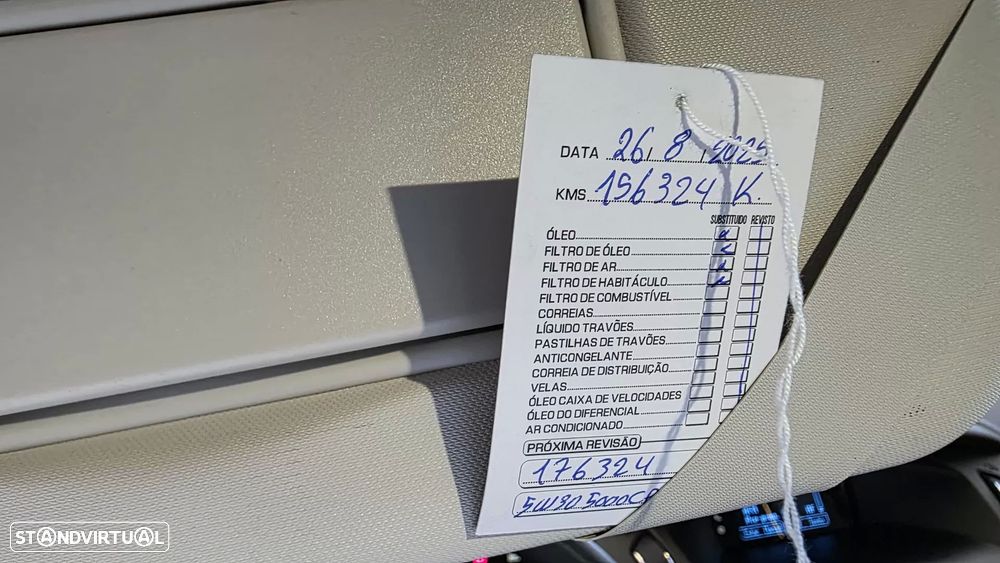 DATA 26/8/2025
KMS 156324 K.
SUBSTITUIDO REVISTO
ÓLEO
FILTRO DE ÓLEO
FILTRO DE AR
FILTRO DE HABITÁCULO
FILTRO DE COMBUSTÍVEL
CORREIAS
LÍQUIDO TRAVÕES
PASTILHAS DE TRAVÕES
ANTICONGELANTE
CORREIA DE DISTRIBUIÇÃO
VELAS
ÓLEO CAIXA DE VELOCIDADES
ÓLEO DO DIFERENCIAL
AR CONDICIONADO
PRÓXIMA REVISÃO
176324
5W30
STANDVIRTUAL